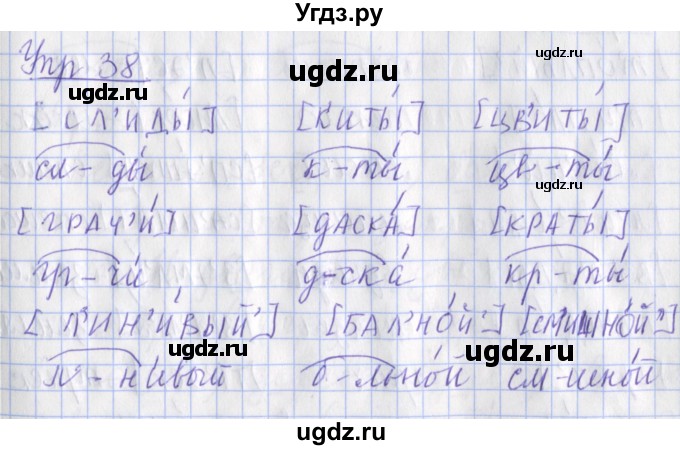 Угдз.ру
Упр 38
ugdz.ru
ugdz.ru
ugdz.ru
[СЛ'ИДЫ́] [К'ИТЫ́] [ЦВ'ИТЫ́]
ugdz.ru
сл-ды́ к-ты́ цв-ты́
ugdz.ru
[ГРАЧ'И́] [ДАСКА́] [КРАТЫ́]
ugdz.ru ugdz.ru ugdz.ru
гр-чи́ д-ска́ кр-ты́
[Л'ИН'И́ВЫЙ'] [БАЛ'НО́Й'] [СМ'ИШНО́Й']
ugdz.ru ugdz.ru
л-ни́вый б-льно́й см-шно́й
ugdz.ru
ugdz.ru